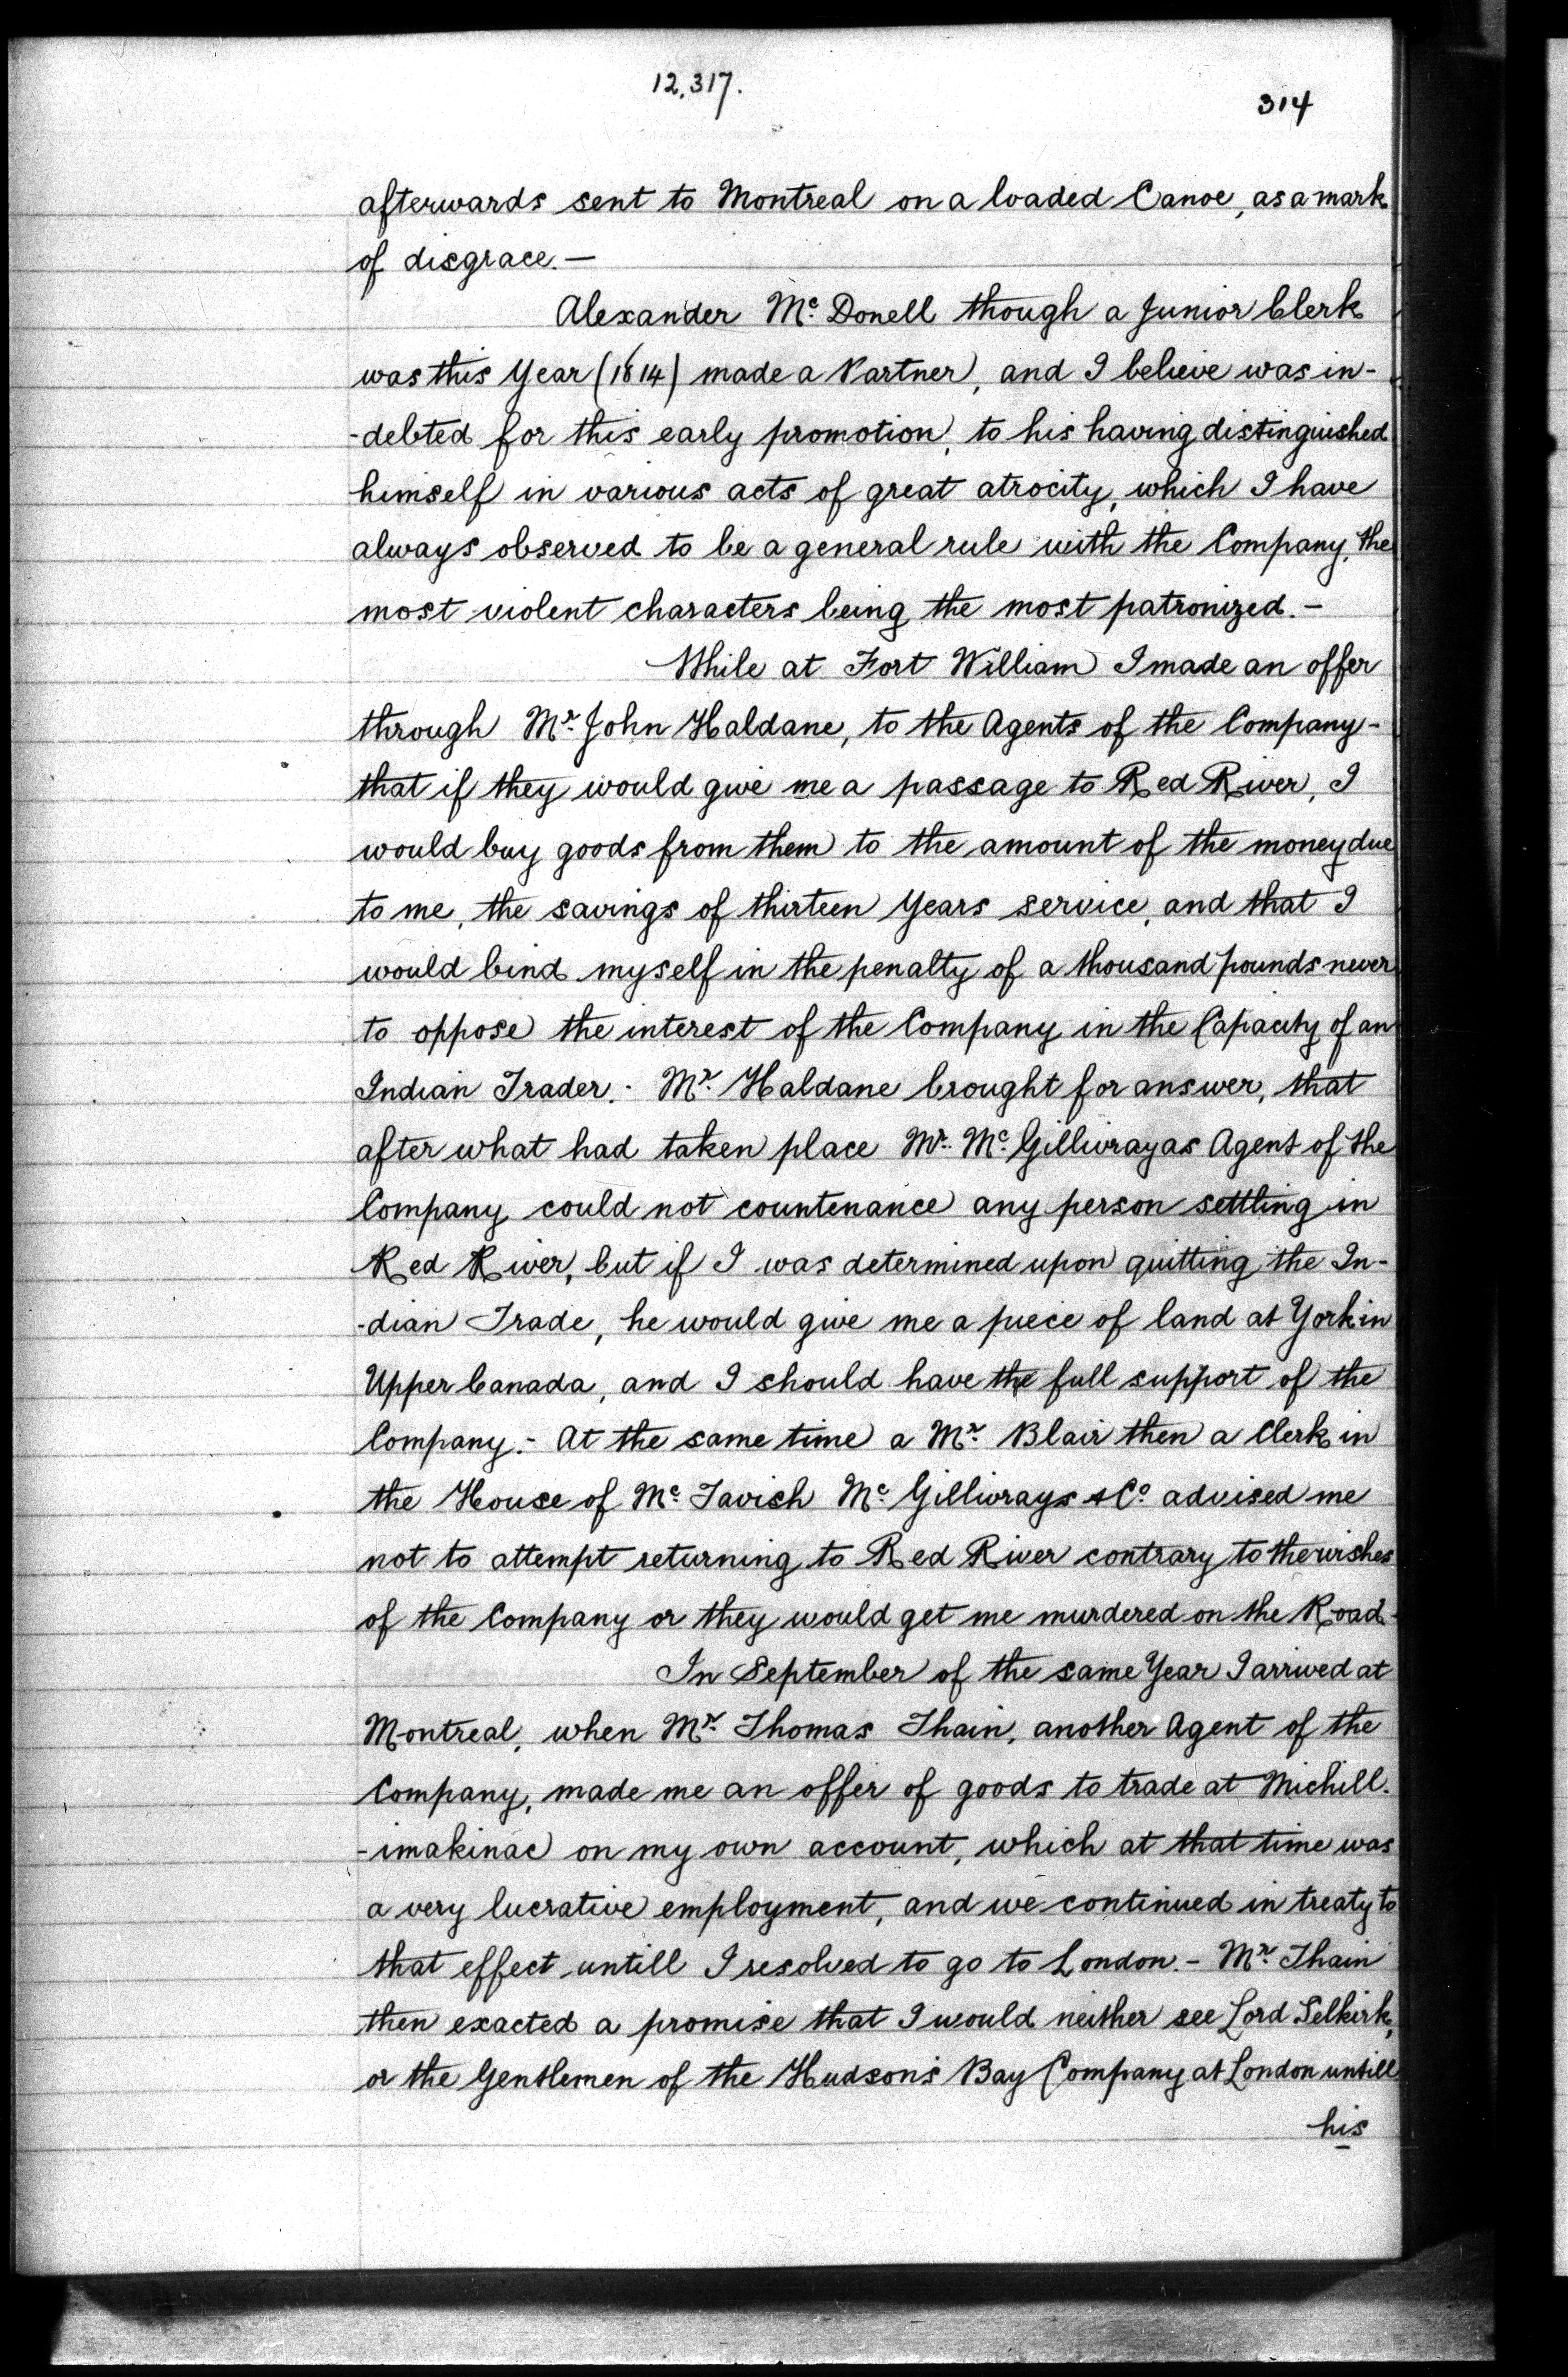 12,317.
314
afterwards sent to Montreal on a loaded Canoe, as a mark
of disgrace. —
Alexander Mc. Donell though a Junior Clerk
was this Year (1814) made a Partner, and I believe was in-
-debted for this early promotion, to his having distinguished
himself in various acts of great atrocity, which I have
always observed to be a general rule with the Company, the
most violent characters being the most patronized. -
While at Fort William I made an offer
through Mr. John Haldane, to the Agents of the Company -
that if they would give me a passage to Red River, I
would buy goods from them to the amount of the money due
to me, the savings of thirteen Years service, and that I
would bind myself in the penalty of a thousand pounds never
to oppose the interest of the Company in the Capacity of an
Indian Trader. - Mr. Haldane brought for answer, that
after what had taken place Mr. Mc. Gillivray as Agent of the
Company could not countenance any person settling in
Red River, but if I was determined upon quitting the In-
-dian Trade, he would give me a piece of land at York in
Upper Canada, and I should have the full support of the
Company. - At the same time a Mr. Blair then a Clerk in
the House of Mc. Tavish Mc. Gillivrays & Co. advised me
not to attempt returning to Red River contrary to the wishes
of the Company or they would get me murdered on the Road -
In September of the same Year I arrived at
Montreal, when Mr. Thomas Thain, another Agent of the
Company, made me an offer of goods to trade at Michill-
-imakinac on my own account, which at that time was
a very lucrative employment, and we continued in treaty to
that effect untill I resolved to go to London. - Mr. Thain
then exacted a promise that I would neither see Lord Selkirk,
or the Gentlemen of the Hudson's Bay Company at London untill
his